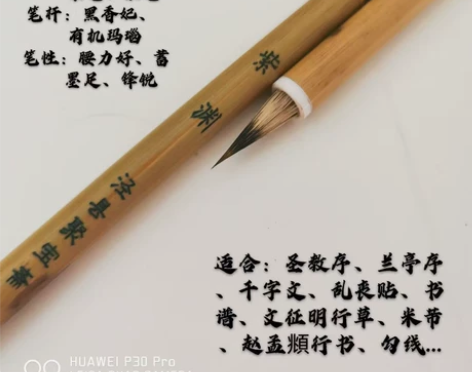 笔杆：黑香妃、
有机玛瑙
笔性：腰力好、蓄
墨足、锋锐
紫渊
泾县聚宝斋
适合：圣教序、兰亭序
、千字文、乱丧贴、书
谱、文征明行草、米芾
、赵孟頫行书、勾线...
HUAWEI P30 Pro